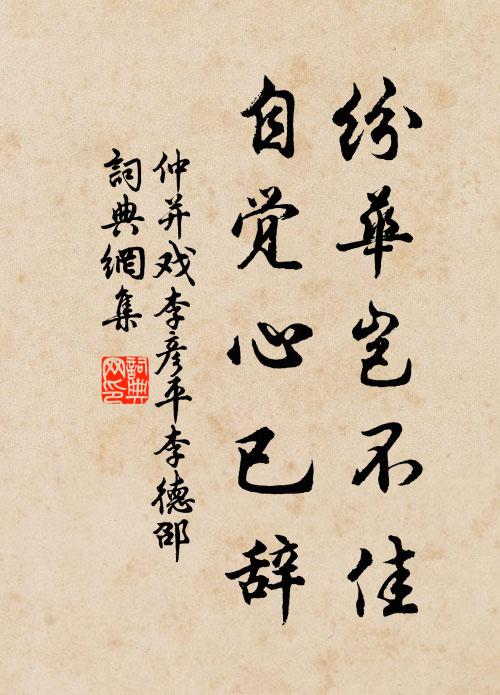 纷華岂不佳
自觉心已辞
仲并戏李彦平李德邵
詞典網集
詞典网印